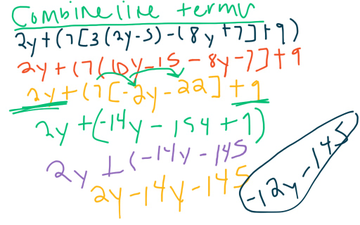 Combine like terms
2y + (7[3(2y-5) - (8y+7] + 9)
2y + (7(10y - 15 - 8y - 7] + 9
2y + (7[-2y - 22] + 9
2y + (-14y - 154 + 9)
2y + (-14y - 145
2y - 14y - 145
-12y - 145